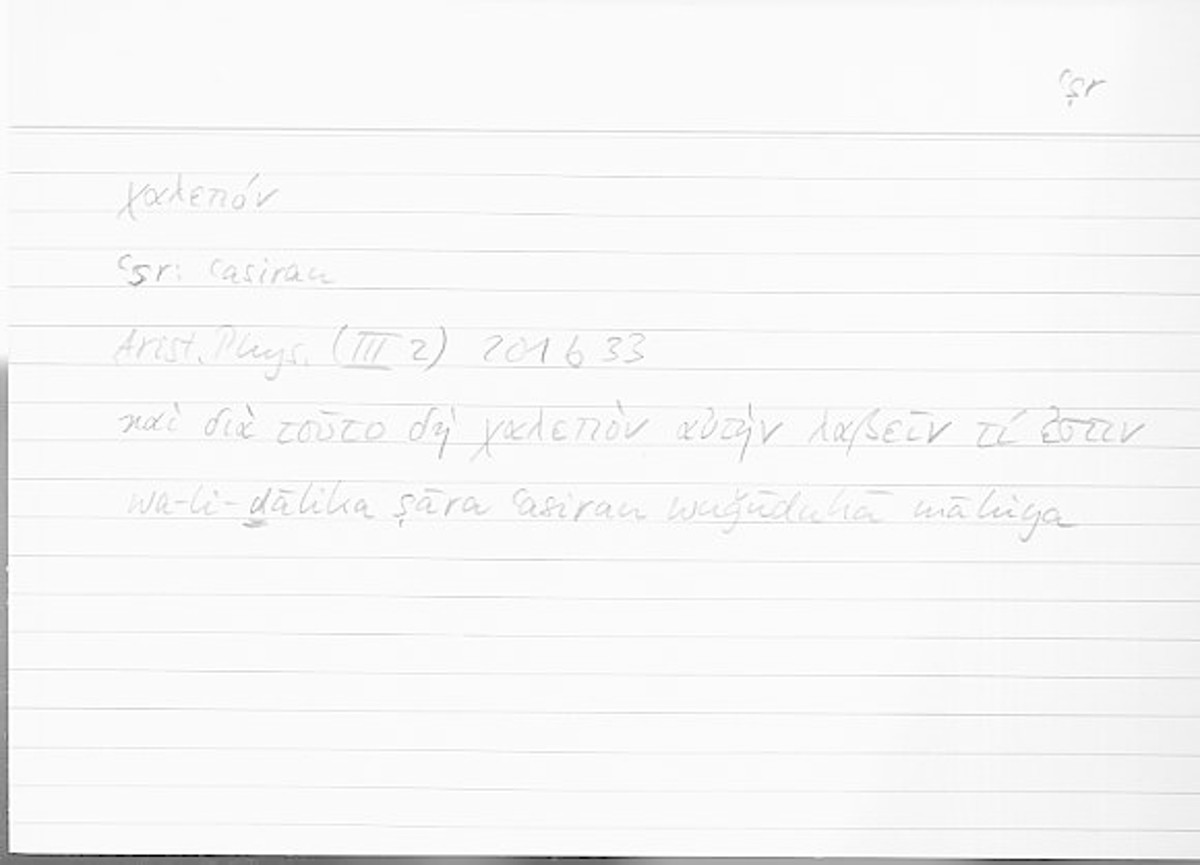 ʿṣr
χαλεπόν
ʿsr: ʿasiran
Arist. Phys. (III 2) 201 b 33
καὶ διὰ τοῦτο δὴ χαλεπὸν αὐτὴν λαβεῖν τί ἐστιν
wa-li-ḏālika ṣāra ʿasiran wuǧūduhā māhiya